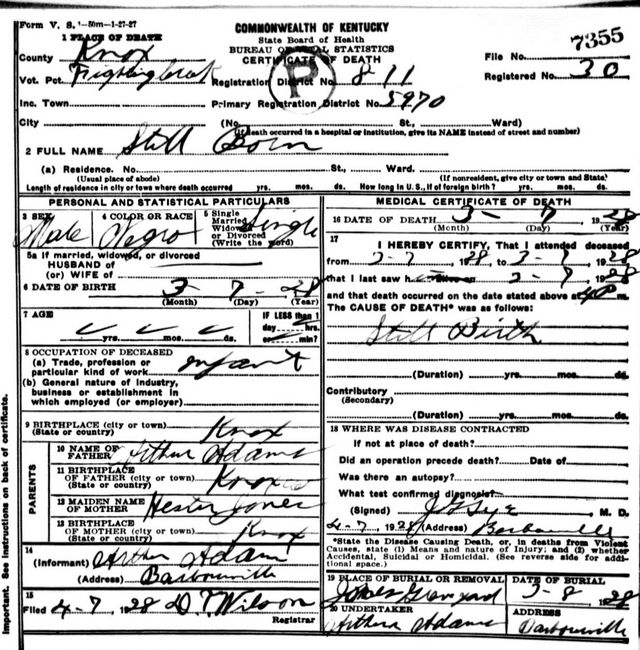 Form V. S. 1-50m-1-27-27
COMMONWEALTH OF KENTUCKY
State Board of Health
BUREAU OF VITAL STATISTICS
CERTIFICATE OF DEATH
P
File No. 7355
Registered No. 30
1 PLACE OF DEATH
County Knox
Vot. Pct. Registration District No. 811
Inc. Town Primary Registration District No. 5970
City (No. St., Ward)
(If death occurred in a hospital or institution, give its NAME instead of street and number)
2 FULL NAME Still Born
(a) Residence. No. St., Ward.
(Usual place of abode) (If nonresident, give city or town and State)
Length of residence in city or town where death occurred yrs. mos. ds. How long in U. S., if of foreign birth? yrs. mos. ds.
PERSONAL AND STATISTICAL PARTICULARS
3 SEX Male
4 COLOR OR RACE Negro
5 Single Married Widowed or Divorced (Write the word) Single
5a If married, widowed, or divorced
HUSBAND of
(or) WIFE of
6 DATE OF BIRTH 3-7-28
(Month) (Day) (Year)
7 AGE
yrs. mos. ds.
IF LESS than 1
day hrs.
or min?
8 OCCUPATION OF DECEASED
(a) Trade, profession or
particular kind of work infant
(b) General nature of industry,
business or establishment in
which employed (or employer)
9 BIRTHPLACE Knox
(State or country)
PARENTS
10 NAME OF FATHER Arthur Adams
11 BIRTHPLACE OF FATHER Knox
(State or country)
12 MAIDEN NAME OF MOTHER Hester Jones
13 BIRTHPLACE OF MOTHER Knox
(State or country)
14
(Informant) Arthur Adams
(Address) Barbourville
15
Filed 4-7, 1928 D. T. Wilson
Registrar
MEDICAL CERTIFICATE OF DEATH
16 DATE OF DEATH 3-7 1928
(Month) (Day) (Year)
17
I HEREBY CERTIFY, That I attended deceased
from 3-7 1928, to 3- 1928
that I last saw h alive on 3-7 1928
and that death occurred on the date stated above at m.
The CAUSE OF DEATH* was as follows:
Still Birth
(Duration) yrs. mos. ds.
Contributory
(Secondary)
(Duration) yrs. mos. ds.
18 WHERE WAS DISEASE CONTRACTED
If not at place of death?
Did an operation precede death? Date of
Was there an autopsy?
What test confirmed diagnosis?
(Signed) M. D.
4-7, 1928 (Address) Barbourville
*State the Disease Causing Death, or, in deaths from Violent
Causes, state (1) Means and nature of Injury; and (2) whether
Accidental, Suicidal or Homicidal. (See reverse side for addi-
tional space.)
19 PLACE OF BURIAL OR REMOVAL
Jones Graveyard
DATE OF BURIAL
3-8 1928
20 UNDERTAKER
Arthur Adams
ADDRESS
Barbourville
Important. See instructions on back of certificate.